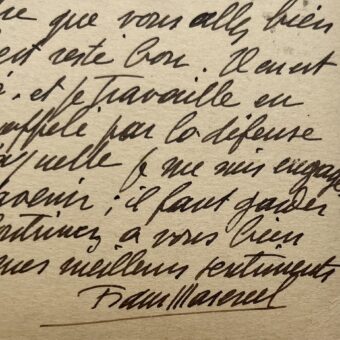 que vous allez bien
est resté bon. Il en est
, et je travaille en
appelé par la défense
laquelle je me suis engagé
avenir ; il faut garder
à vous bien
mes meilleurs sentiments
Frans Masereel